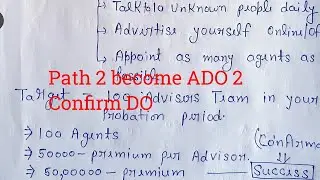 → Talk to unknown people daily
→ Advertise yourself online/of
→ Appoint as many agents as
Path 2 become ADO 2
Target = 100 Advisors Team in your
Confirm DO
probation period.
→ 100 Agents
(Confirm
→ 50000 - premium per Advisor.
→ 50,00000 - premium
Success